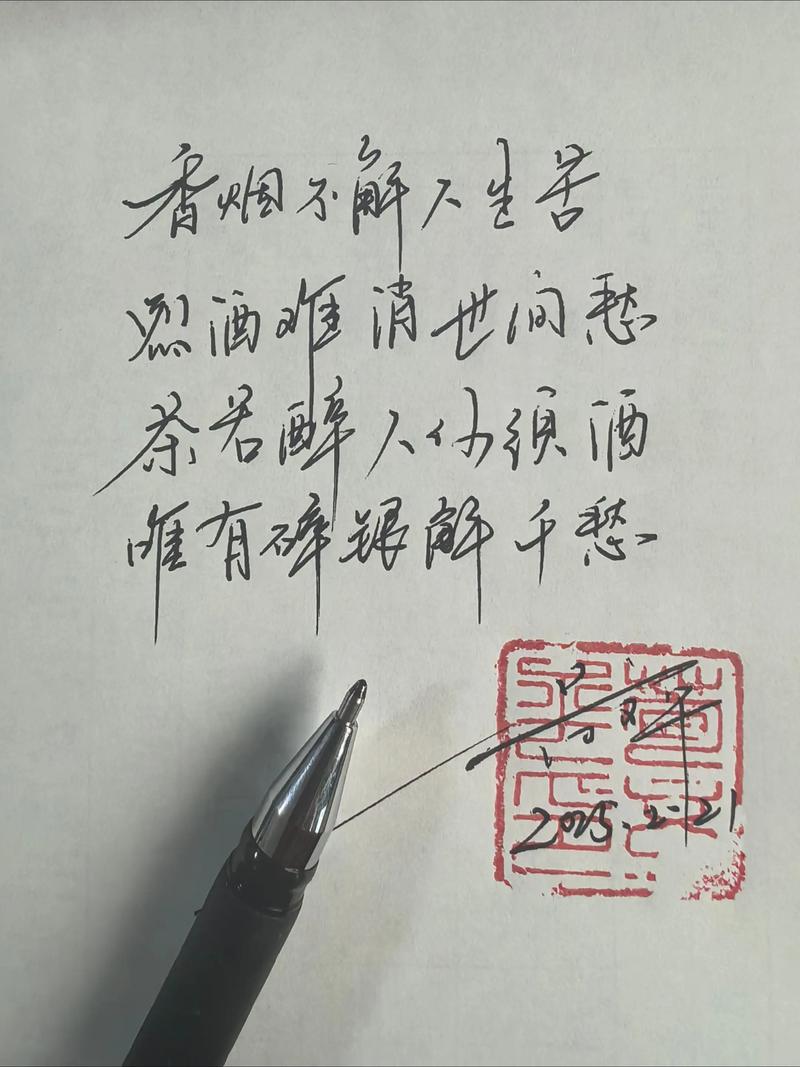 香烟不解人生苦
烈酒难消世间愁
茶若醉人何须酒
唯有碎银解千愁
2025.2.21